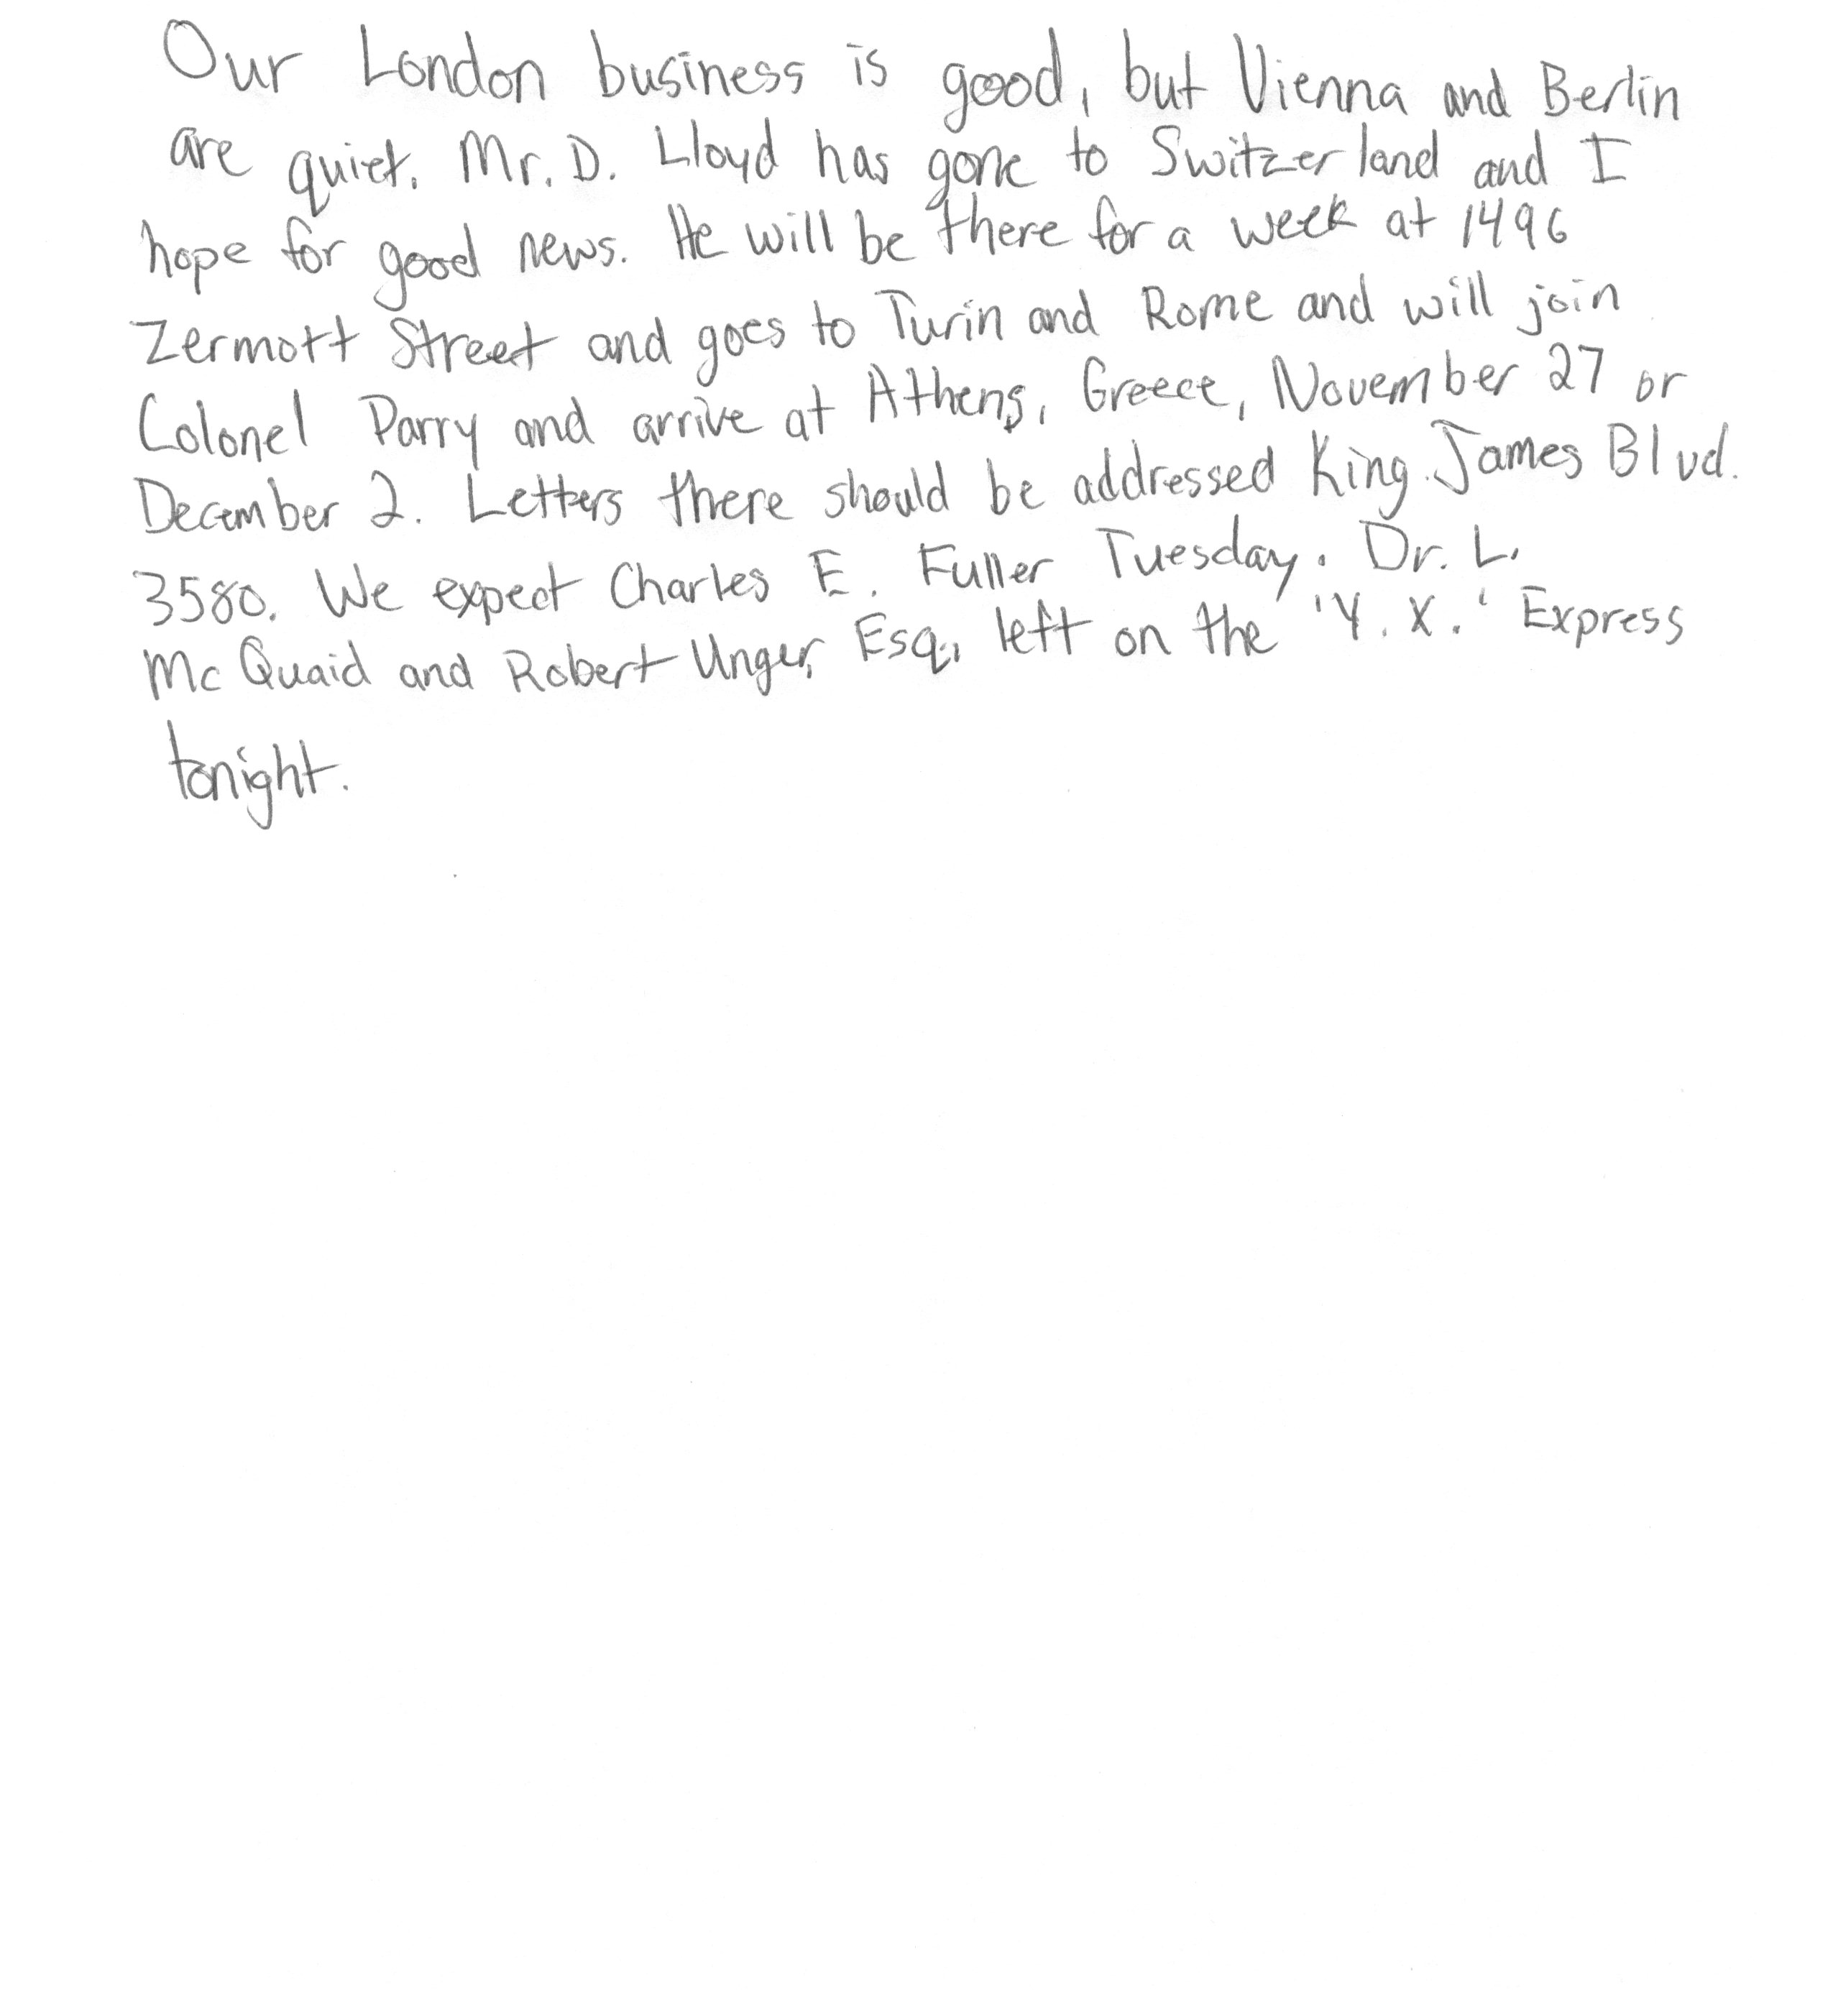 Our London business is good, but Vienna and Berlin
are quiet. Mr. D. Lloyd has gone to Switzerland and I
hope for good news. He will be there for a week at 1496
Zermott Street and goes to Turin and Rome and will join
Colonel Parry and arrive at Athens, Greece, November 27 or
December 2. Letters there should be addressed King James Blvd.
3580. We expect Charles E. Fuller Tuesday. Dr. L.
McQuaid and Robert Unger, Esq., left on the 'Y. X.' Express
tonight.